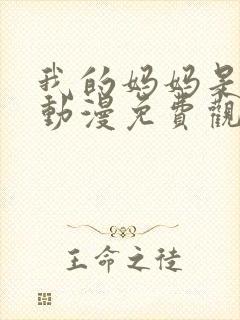 我的妈妈是
動漫免費觀
王命之徒